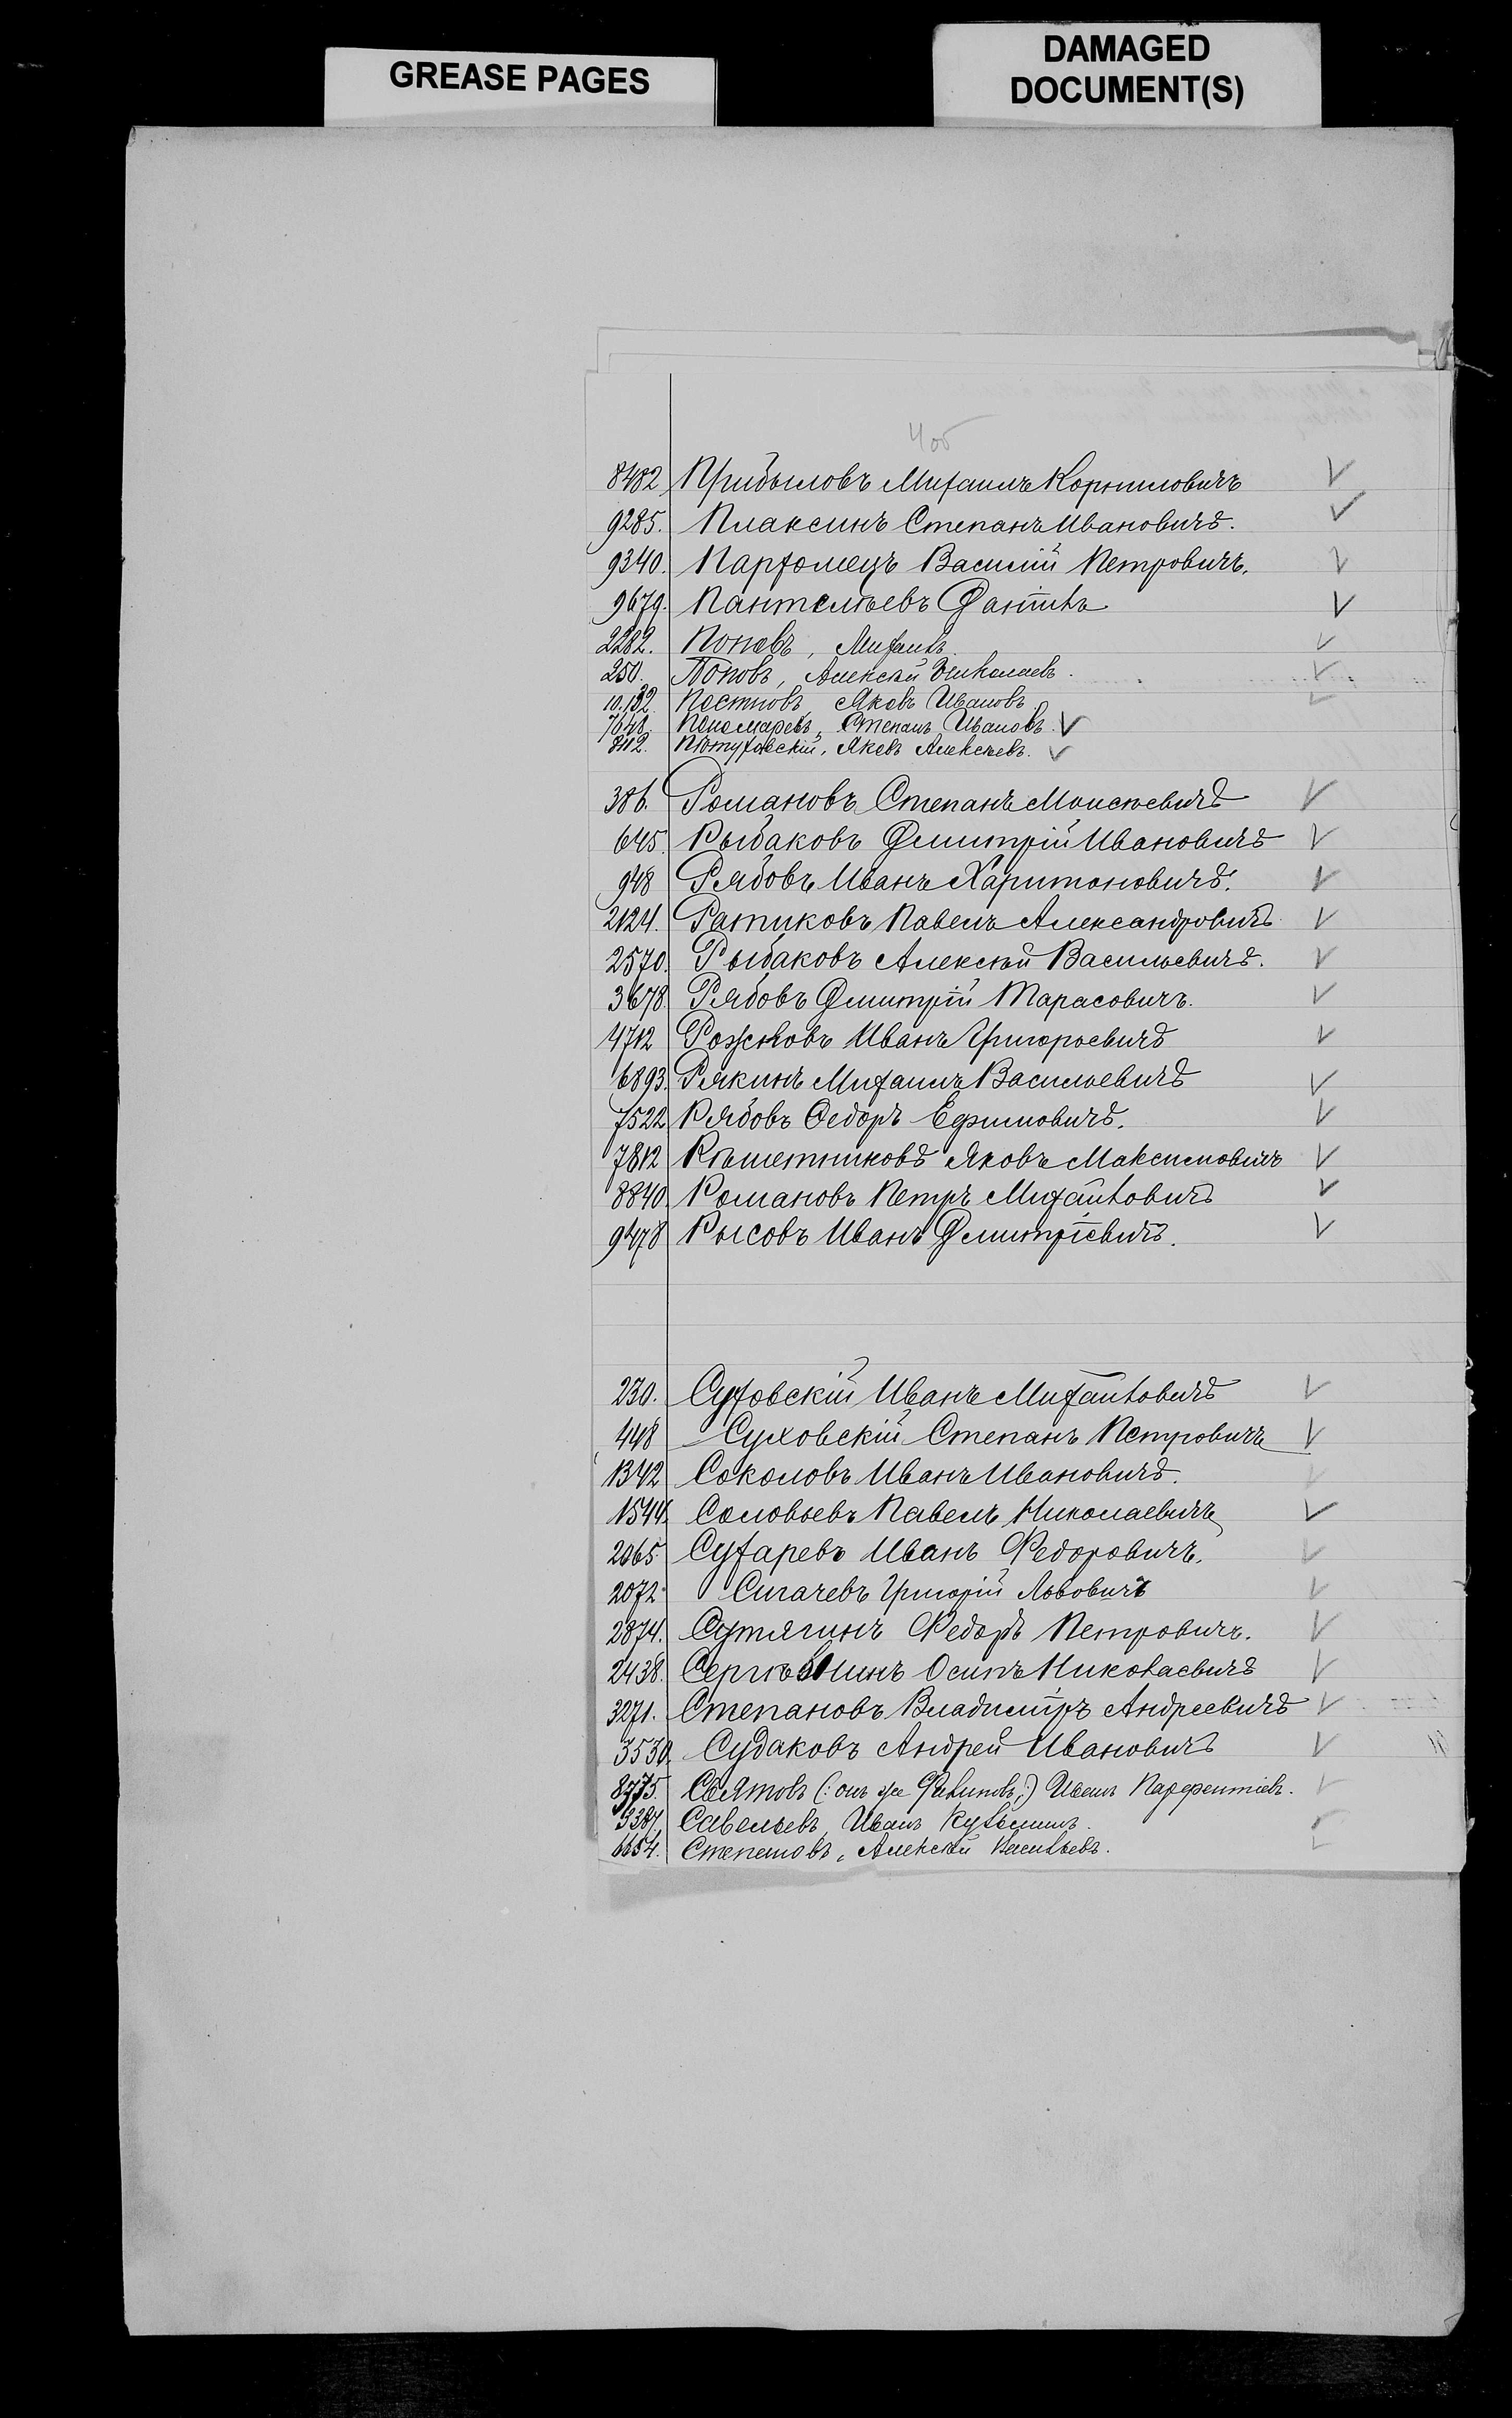 GREASE PAGES
DAMAGED
DOCUMENT(S)
4об
8482 Прибыловъ Михаилъ Корниловичъ
9285. Плаксинъ Степанъ Ивановичъ.
9340. Пархомецъ Василій Петровичъ.
9679. Пантелѣевъ
2282. Поповъ, Михаилъ.
250. Поповъ, Алексѣй Николаевъ.
10.132 Постновъ, Яковъ Ивановъ
7648. Пономаревъ, Степанъ Ивановъ.
Яковъ Алексѣевъ.
386. Романовъ Степанъ Моисѣевичъ
645. Рыбаковъ Дмитрій Ивановичъ
948 Рябовъ Иванъ Харитоновичъ.
2124. Ратиковъ Павелъ Александровичъ
2570. Рыбаковъ Алексѣй Васильевичъ.
3678. Рябовъ Дмитрій Тарасовичъ.
4712 Рожковъ Иванъ Григорьевичъ
6893. Рякинъ Михаилъ Васильевичъ
7522 Рябовъ Ѳедоръ Ефимовичъ.
7812 Рѣшетниковъ Яковъ Максимовичъ
8840. Романовъ Петръ Михайловичъ
9478 Рысовъ Иванъ Дмитріевичъ.
230. Суховскій Иванъ Михайловичъ
448 Суховскій Степанъ Петровичъ
1342 Соколовъ Иванъ Ивановичъ.
1544. Соловьевъ Павелъ Николаевичъ
2065. Сухаревъ Иванъ Федоровичъ.
2072. Сигачевъ Григорій Львовичъ
2874. Сутягинъ Федоръ Петровичъ.
2438. Осипъ Николаевичъ
3271. Степановъ Владиміръ Андреевичъ
3530. Судаковъ Андрей Ивановичъ
8775. Святовъ (: онъ же Филиповъ :) Иванъ Парфентіевъ.
Савельевъ, Иванъ Кузьминъ.
6654. Степановъ, Алексѣй Васильевъ.